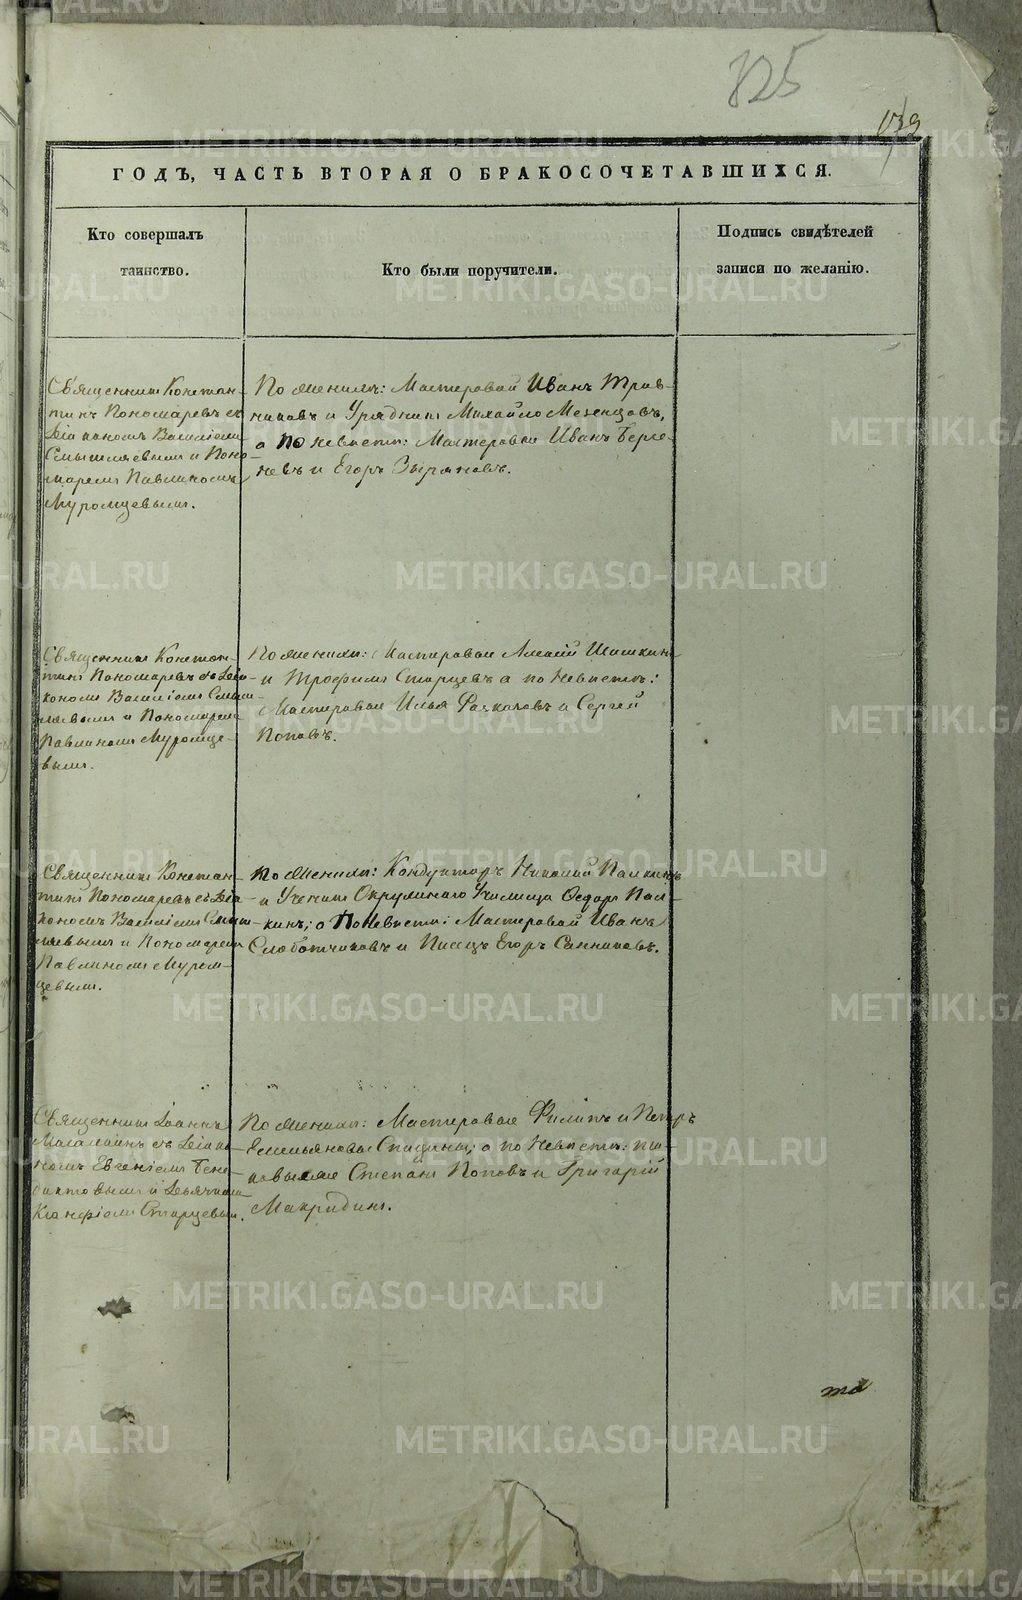 325
ГОДЪ, ЧАСТЬ ВТОРАЯ О БРАКОСОЧЕТАВШИХСЯ.
Кто совершалъ
таинство.
Кто были поручители.
Подпись свидѣтелей
записи по желанію.
Священникъ Констан-
тинъ Пономаревъ съ
Діакономъ Василіемъ
Смышляевымъ и Поно-
маремъ Павлиномъ
Муромцевымъ.
По женихѣ: Мастеровой Иванъ Трав-
никовъ и Урядникъ Михайло Мезенцовъ,
а по невѣстѣ: Мастеровые Иванъ
и Егоръ Зыряновъ.
Священникъ Констан-
тинъ Пономаревъ съ Діа-
кономъ Василіемъ Смыш-
ляевымъ и Пономаремъ
Павлиномъ Муромце-
вымъ.
По женихѣ: Мастеровые Алексѣй Шишкинъ
и Трофимъ Старцевъ а по невѣстѣ:
Мастеровые Илья Расколовъ и Сергей
Поповъ.
Священникъ Констан-
тинъ Пономаревъ съ Діа-
кономъ Василіемъ Смыш-
ляевымъ и Пономаремъ
Павлиномъ Муром-
цевымъ.
По женихѣ: Кондукторъ Николай Палкинъ
и Ученикъ Окружнаго Училища Ѳедоръ Пал-
кинъ; а по невѣстѣ: Мастеровой Иванъ
Слободчиковъ и Писецъ Егоръ Санниковъ.
Священникъ Іоаннъ
съ Діако-
номъ Евгеніемъ Бене-
диктовымъ и Дьячкомъ
Ксанфіемъ Старцевым.
По женихѣ: Мастеровые Филипъ и Петръ
Емельяновы Спицины; а по невѣстѣ:
Степанъ Поповъ и Григорій
Макридинъ.
та
METRIKI.GASO-URAL.RU